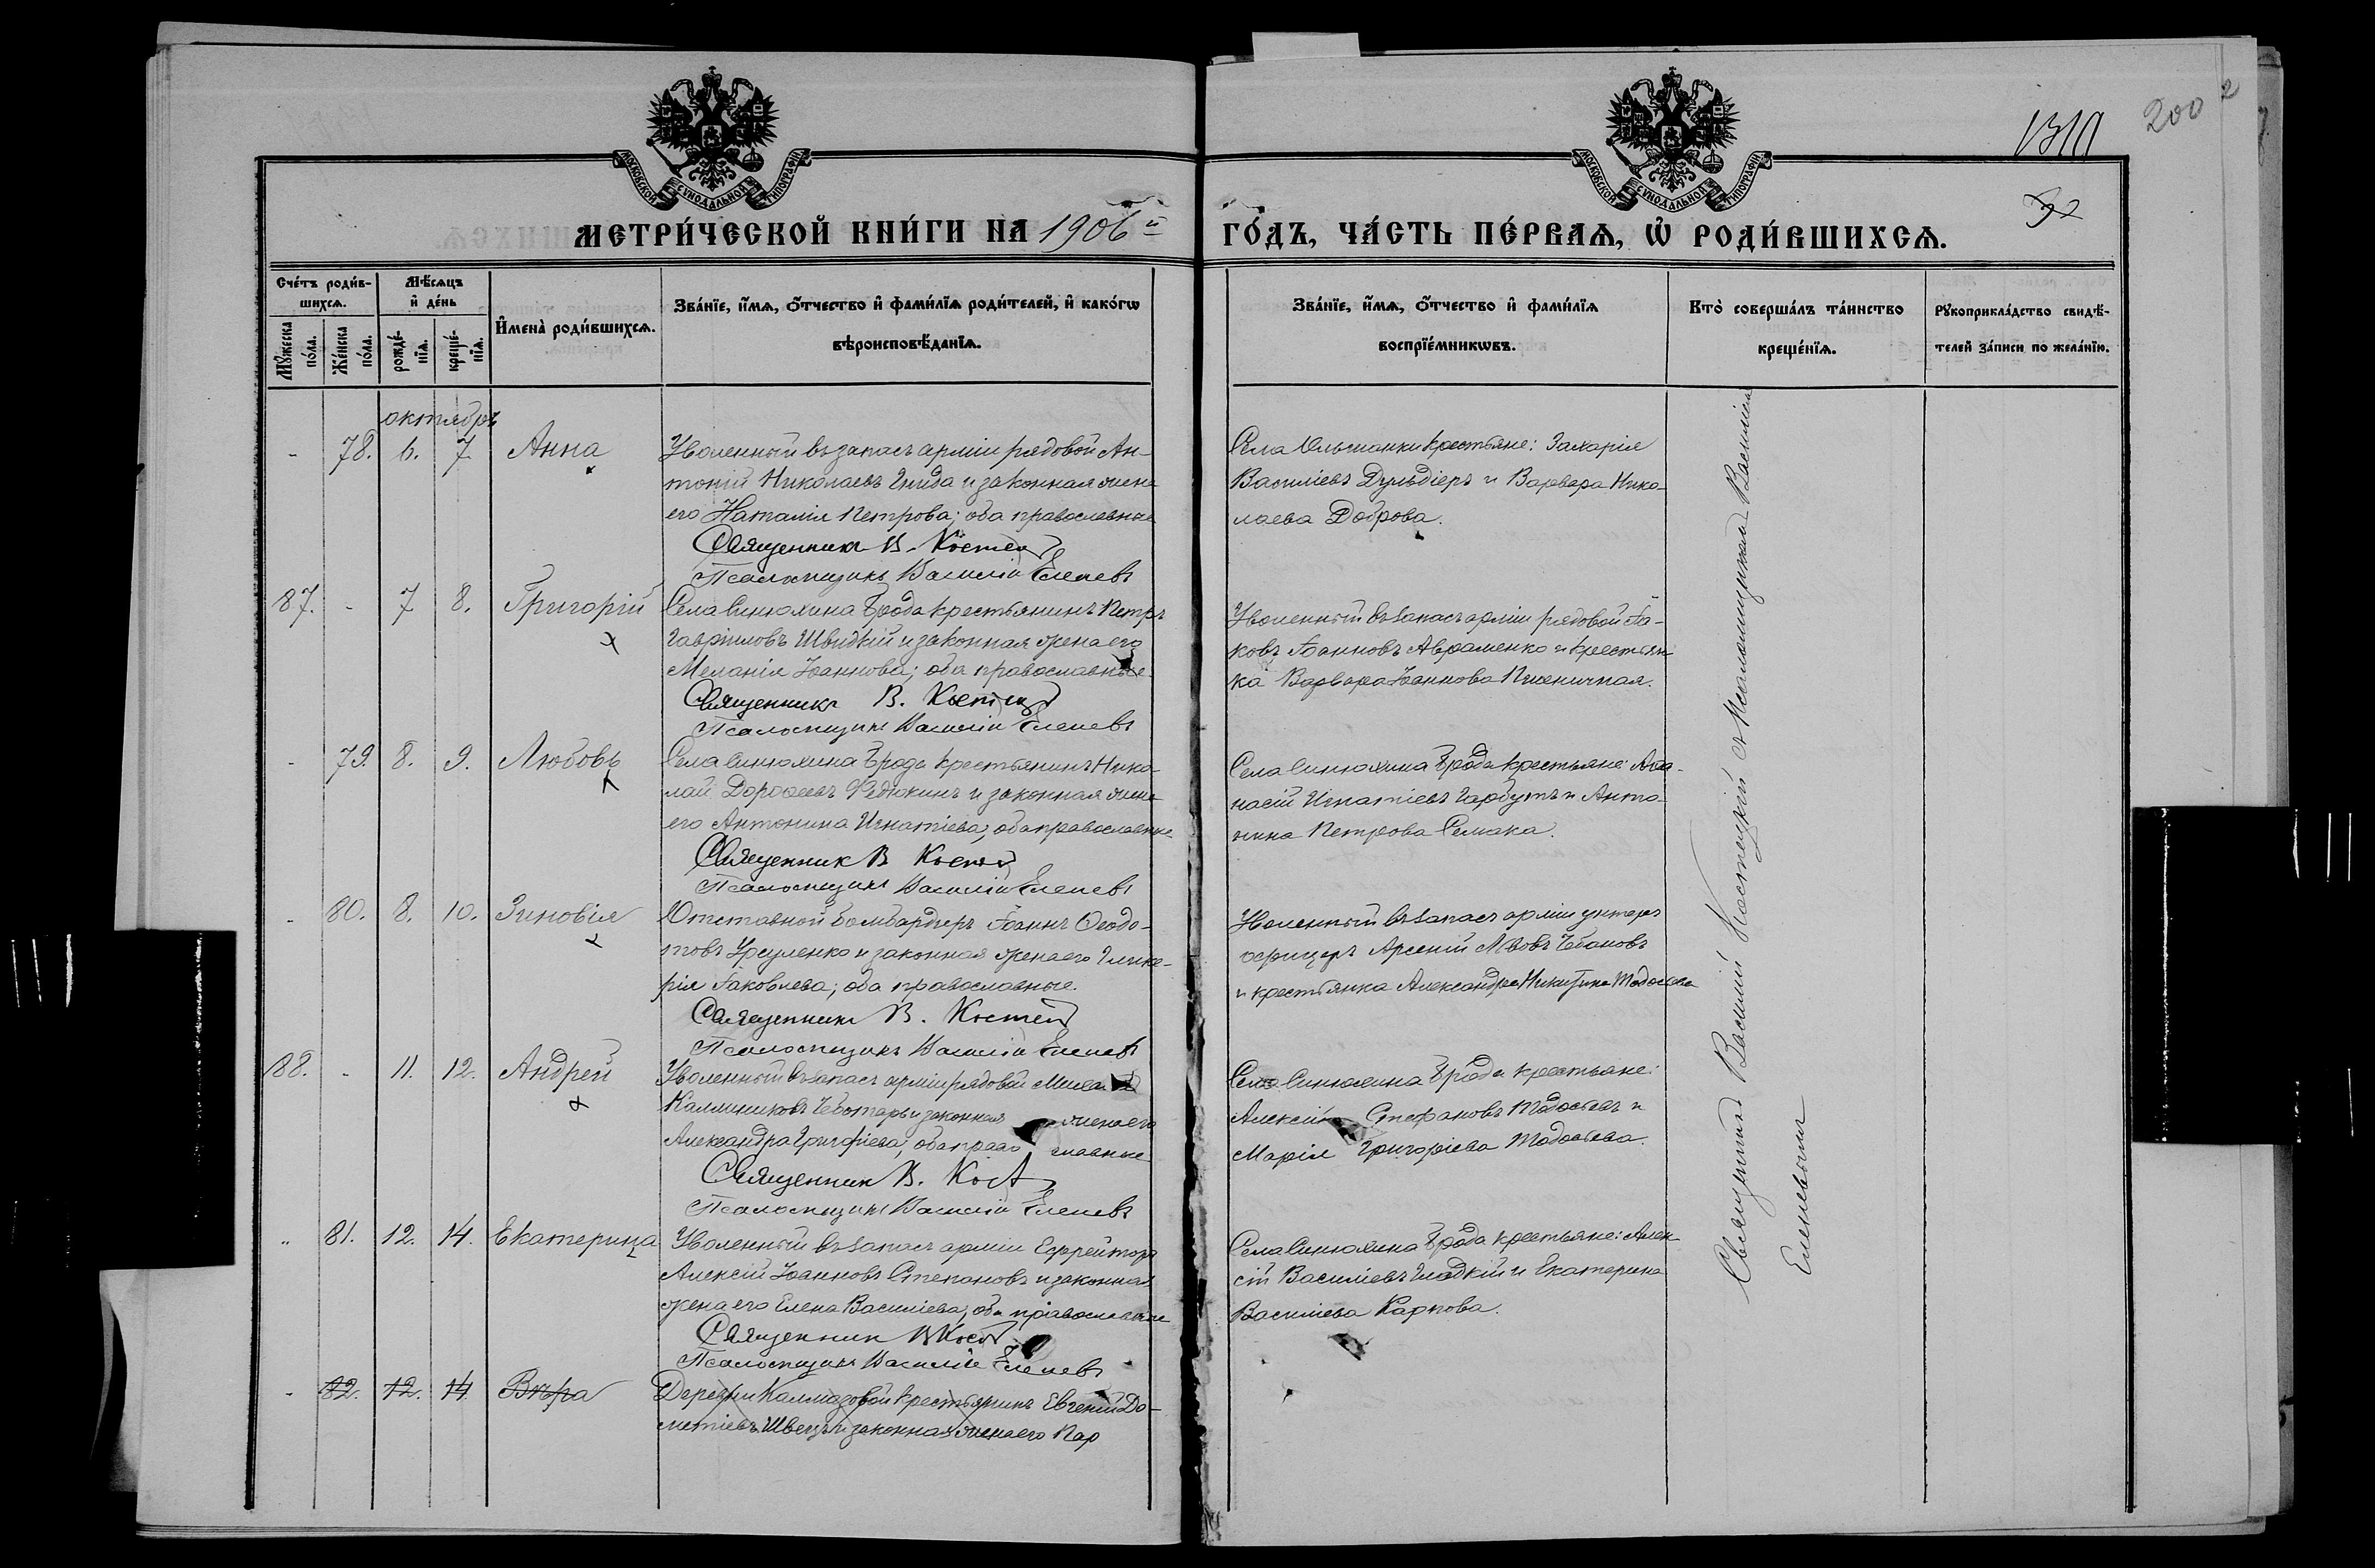 МОСКОВСКОЙ СѴНОДАЛЬНОЙ ТИПОГРАФІИ
МОСКОВСКОЙ СѴНОДАЛЬНОЙ ТИПОГРАФІИ
200
МЕТРИ́ЧЕСКОЙ КНИ́ГИ НА 1906й
ГО́ДЪ, ЧА́СТЬ ПЕ́РВАѦ, Ѽ РОДИ́ВШИХСѦ.
Сче́тъ роди́в-
шихсѧ.
Мꙋ́жеска по́ла.
Же́нска по́ла.
Мѣ́сѧцъ
и҆ де́нь
рожде́-
нїѧ.
креще́-
нїѧ.
И҆мена̀ роди́вшихсѧ.
Зва́нїе, и҆́мѧ, ѻ҆́тчество и҆ фами́лїѧ роди́телей, и҆ како́гѡ
вѣроисповѣ́данїѧ.
Зва́нїе, и҆́мѧ, ѻ҆́тчество и҆ фами́лїѧ
воспрїе́мникѡвъ.
Кто̀ соверша́лъ та́инство
креще́нїѧ.
Рꙋкоприкла́дство свидѣ́-
телей за́писи по жела́нїю.
октябрь
- 78. 6. 7. Анна
Уволенный въ запасъ арміи рядовой Ан-
тоній Николаевъ Гнида и законная жена
его Наталія Петрова; оба православные
Священникъ В. Костец
Псаломщикъ Василій Еленевъ
Села Ольшанки крестьяне: Захарія
Василіевъ Дульдіеръ и Варвара Нико-
лаева Доброва.
87. - 7. 8. Григорій
Села Синюхина Брода крестьянинъ Петръ
Гавріиловъ Швидкій и законная жена его
Меланія Іоаннова; оба православные
Священникъ В. Костец
Псаломщикъ Василій Еленевъ
Уволенный въ запасъ арміи рядовой Іа-
ковъ Іоанновъ Авраменко и крестьян-
ка Варвара Іоаннова Пшеничная.
- 79. 8. 9. Любовь
Села Синюхина Брода крестьянинъ Нико-
лай Дорофеевъ Федюкинъ и законная жена
его Антонина Игнатіева; оба православные
Священник В Костец
Псаломщикъ Василій Еленевъ
Села Синюхина Брода крестьяне: Афа-
насій Игнатіевъ Гарбутъ и Анто-
нина Петрова Семака.
- 80. 8. 10. Зиновія
Отставной бомбардиръ Іоаннъ Феодо-
товъ и законная жена его Глике-
рія Іаковлева; оба православные.
Священникъ В. Костец
Псаломщикъ Василій Еленевъ
Уволенный въ запасъ арміи унтеръ
офицеръ Арсеній Львовъ Чебановъ
и крестьянка Александра Никитина Тодосьева
88. - 11. 12. Андрей
Уволенный въ запасъ арміи рядовой
Каллиниковъ Чеботарь и законная жена его
Александра Григоріева; оба православные
Священник В. Кост
Псаломщикъ Василій Еленевъ
Села Синюхина Брода крестьяне:
Алексій Стефановъ Тодосьевъ и
Марія Григоріева Тодосьева.
" 81. 12. 14. Екатерина
Уволенный въ запасъ арміи Ефрейторъ
Алексій Іоанновъ Степановъ и законная
жена его Елена Василіева; оба православные
Священник В Кост
Псаломщикъ Василій Еленевъ
Села Синюхина Брода крестьяне: Алек-
сій Василіевъ Гладкій и Екатерина
Василіева Карпова.
- 82. 12. 14. Вѣра
Деревни Калмазовой крестьянинъ Евгеній До-
метіевъ Швецъ и законная жена его Пар
Священникъ Василій Костецкій съ Псаломщикомъ Василіемъ
Еленевымъ